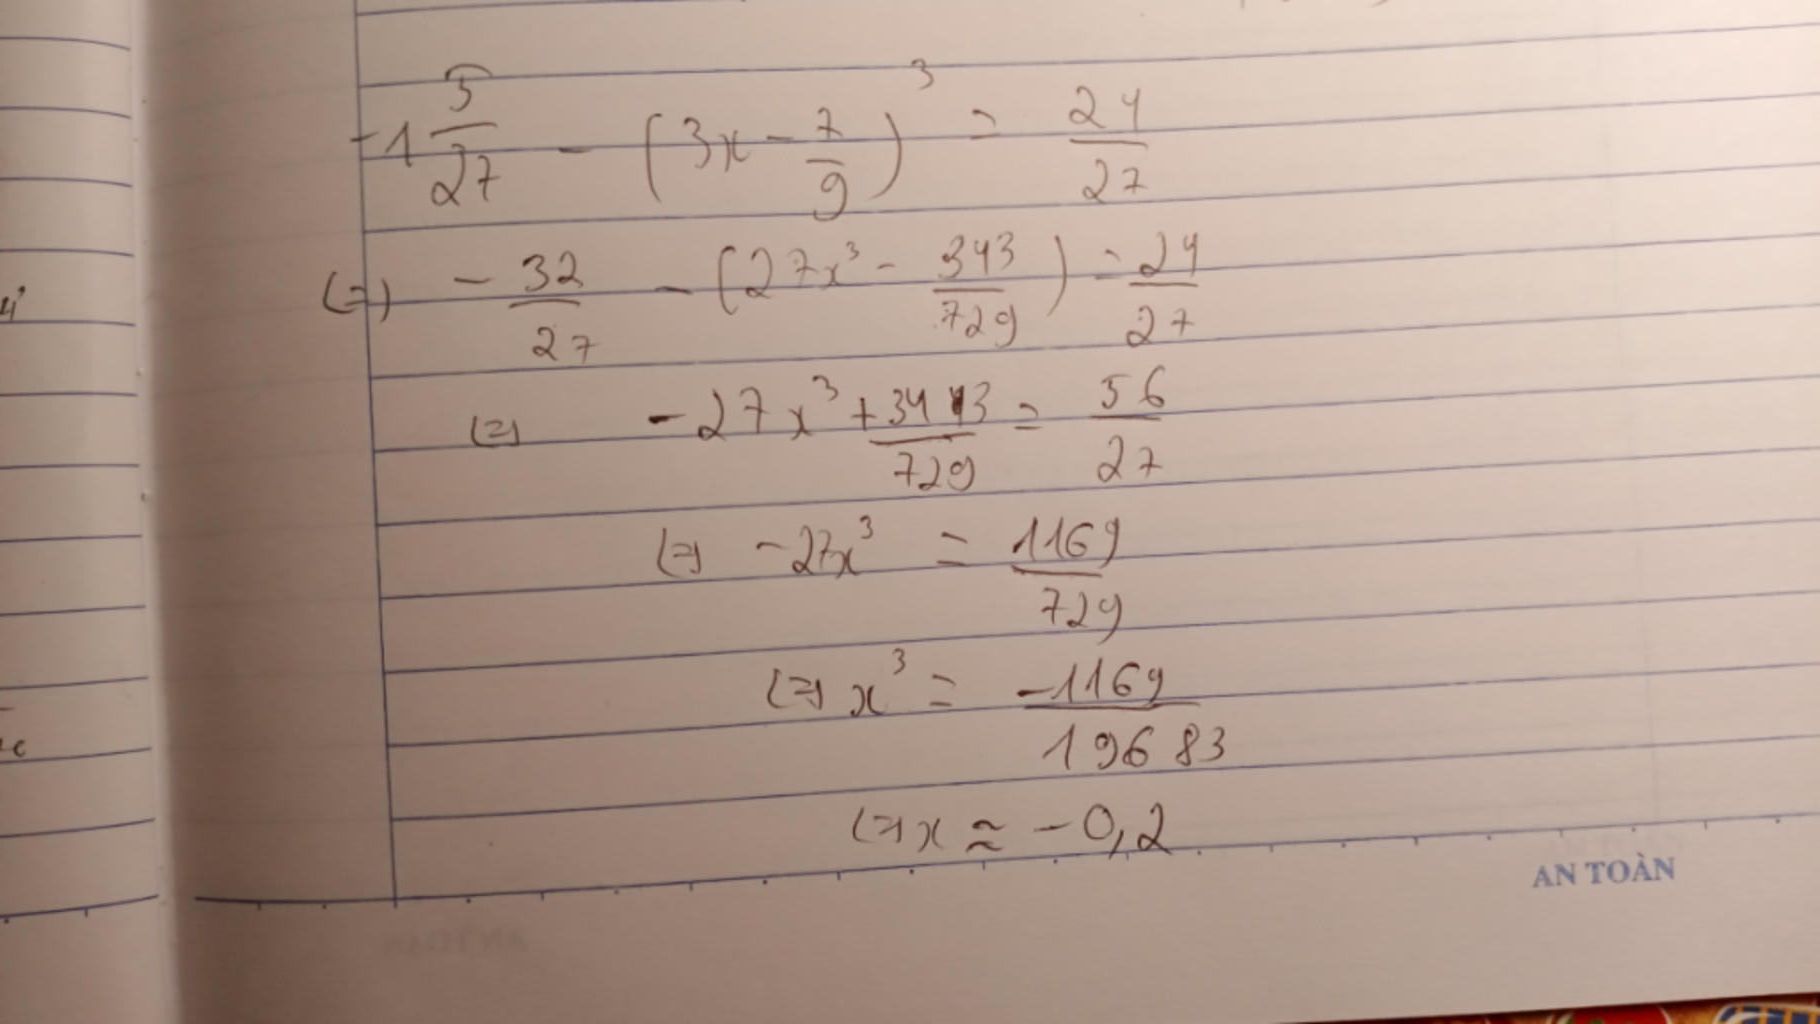 -1 5/27 - (3x - 7/9)^3 = 24/27
(=) - 32/27 - (27x^3 - 343/729) = 24/27
(=) - 27x^3 + 343/729 = 56/27
(=) - 27x^3 = 1169/729
(=) x^3 = -1169/19683
(=) x ≈ - 0,2
AN TOÀN